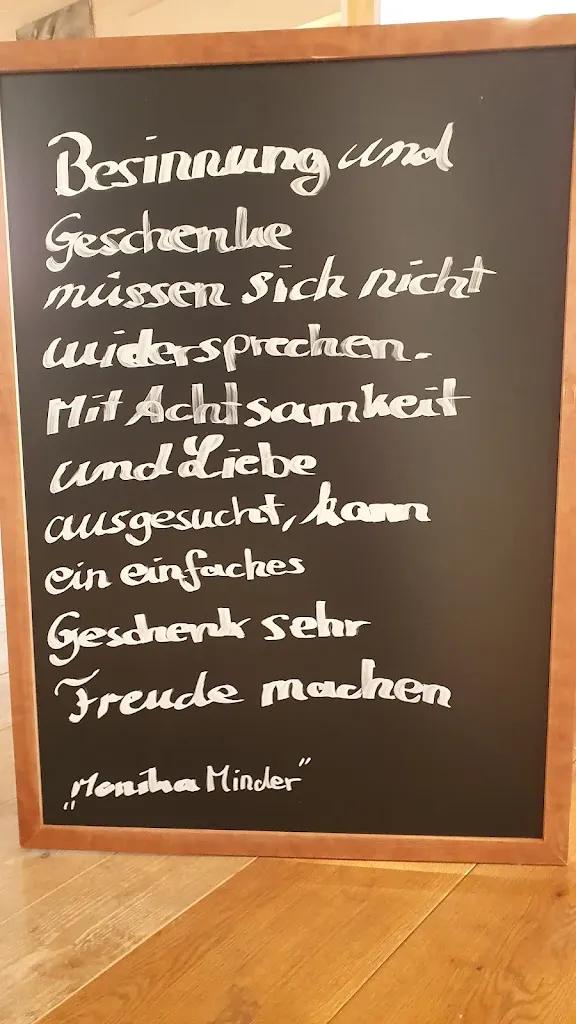 Besinnung und
Geschenke
müssen sich nicht
widersprechen.
Mit Achtsamkeit
und Liebe
ausgesucht, kann
ein einfaches
Geschenk sehr
Freude machen
„Monika Minder"